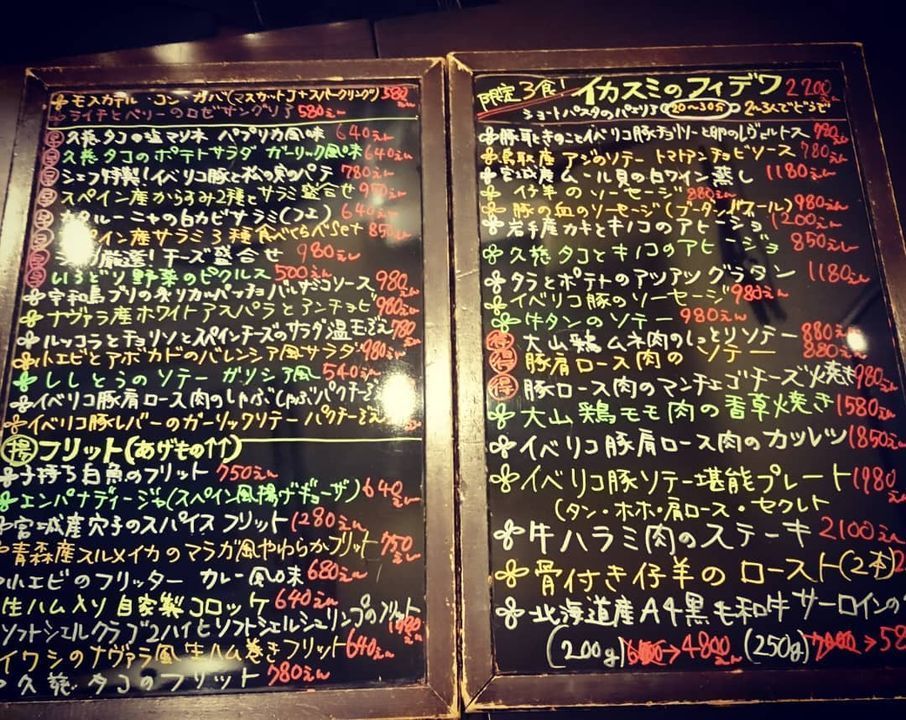 モスカテル・コン・カバ(マスカット)+スパークリング) 580えん
ライチとベリーのロゼサングリア 580えん
早 久慈タコの塩マリネ パプリカ風味 640えん
早 久慈タコのポテトサラダ ガーリック風味 640えん
早 シェフ特製!イベリコ豚と松の実のパテ 780えん
早 スペイン産からすみ2種とサラミ盛合せ 950えん
早 カタルーニャの白カビサラミ(フエ) 640えん
スペイン産サラミ3種食べくらべset 850えん
厳選!チーズ盛合せ 980えん
いろどり野菜のピクルス 500えん
宇和島ブリの炙りカルパッチョバルサミコソース 980えん
ナヴァラ産ホワイトアスパラとアンチョビ 980えん
ルッコラとチョリソとスペインチーズのサラダ 温玉 780
小エビとアボカドのバレンシア風サラダ 980えん
ししとうのソテー ガリシア風 540えん
イベリコ豚肩ロース肉のしゃぶしゃぶパクチー
イベリコ豚レバーのガーリックソテー パクチー
揚 フリット(あげもの↑↑)
子持ち白魚のフリット 750えん
エンパナディージャ(スペイン風揚げギョーザ) 640えん
宮城産穴子のスパイスフリット 1280えん
青森産スルメイカのマラガ風やわらかフリット 750えん
小エビのフリッター カレー風味 680えん
生ハム入り自家製コロッケ 640えん
ソフトシェルクラブ2ハイとソフトシェルシュリンプのフリット
イワシのナヴァラ風生ハム巻きフリット 640えん
久慈タコのフリット 780えん
限定3食! イカスミのフィデワ 2200
ショートパスタのパエリア 20〜30分 2〜3人でどうぞ
豚耳ときのことイベリコ豚チョリソーと卵のレヴェルトス 980えん
鳥取産 アジのソテー トマトアンチョビソース 780えん
宮城産ムール貝の白ワイン蒸し 1180えん
仔羊のソーセージ 880えん
豚の血のソーセージ(ブータンノワール) 980えん
岩手産カキとキノコのアヒージョ 1200えん
久慈タコとキノコのアヒージョ 850えん
タラとポテトのアツアツグラタン 1180えん
イベリコ豚のソーセージ 980えん
牛タンのソテー 980えん
得 大山鶏ムネ肉のしっとりソテー 880えん
得 豚肩ロース肉のソテー 880えん
得 豚ロース肉のマンチェゴチーズ焼き 980えん
大山鶏モモ肉の香草焼き 1580えん
イベリコ豚肩ロース肉のカツレツ 1850えん
イベリコ豚ソテー堪能プレート 1980えん
(タン・ホホ・肩ロース・セクレト
牛ハラミ肉のステーキ 2100えん
骨付き仔羊のロースト(2本) 2
北海道産A4黒毛和牛サーロインの
(200g) →4800えん (250g) →58